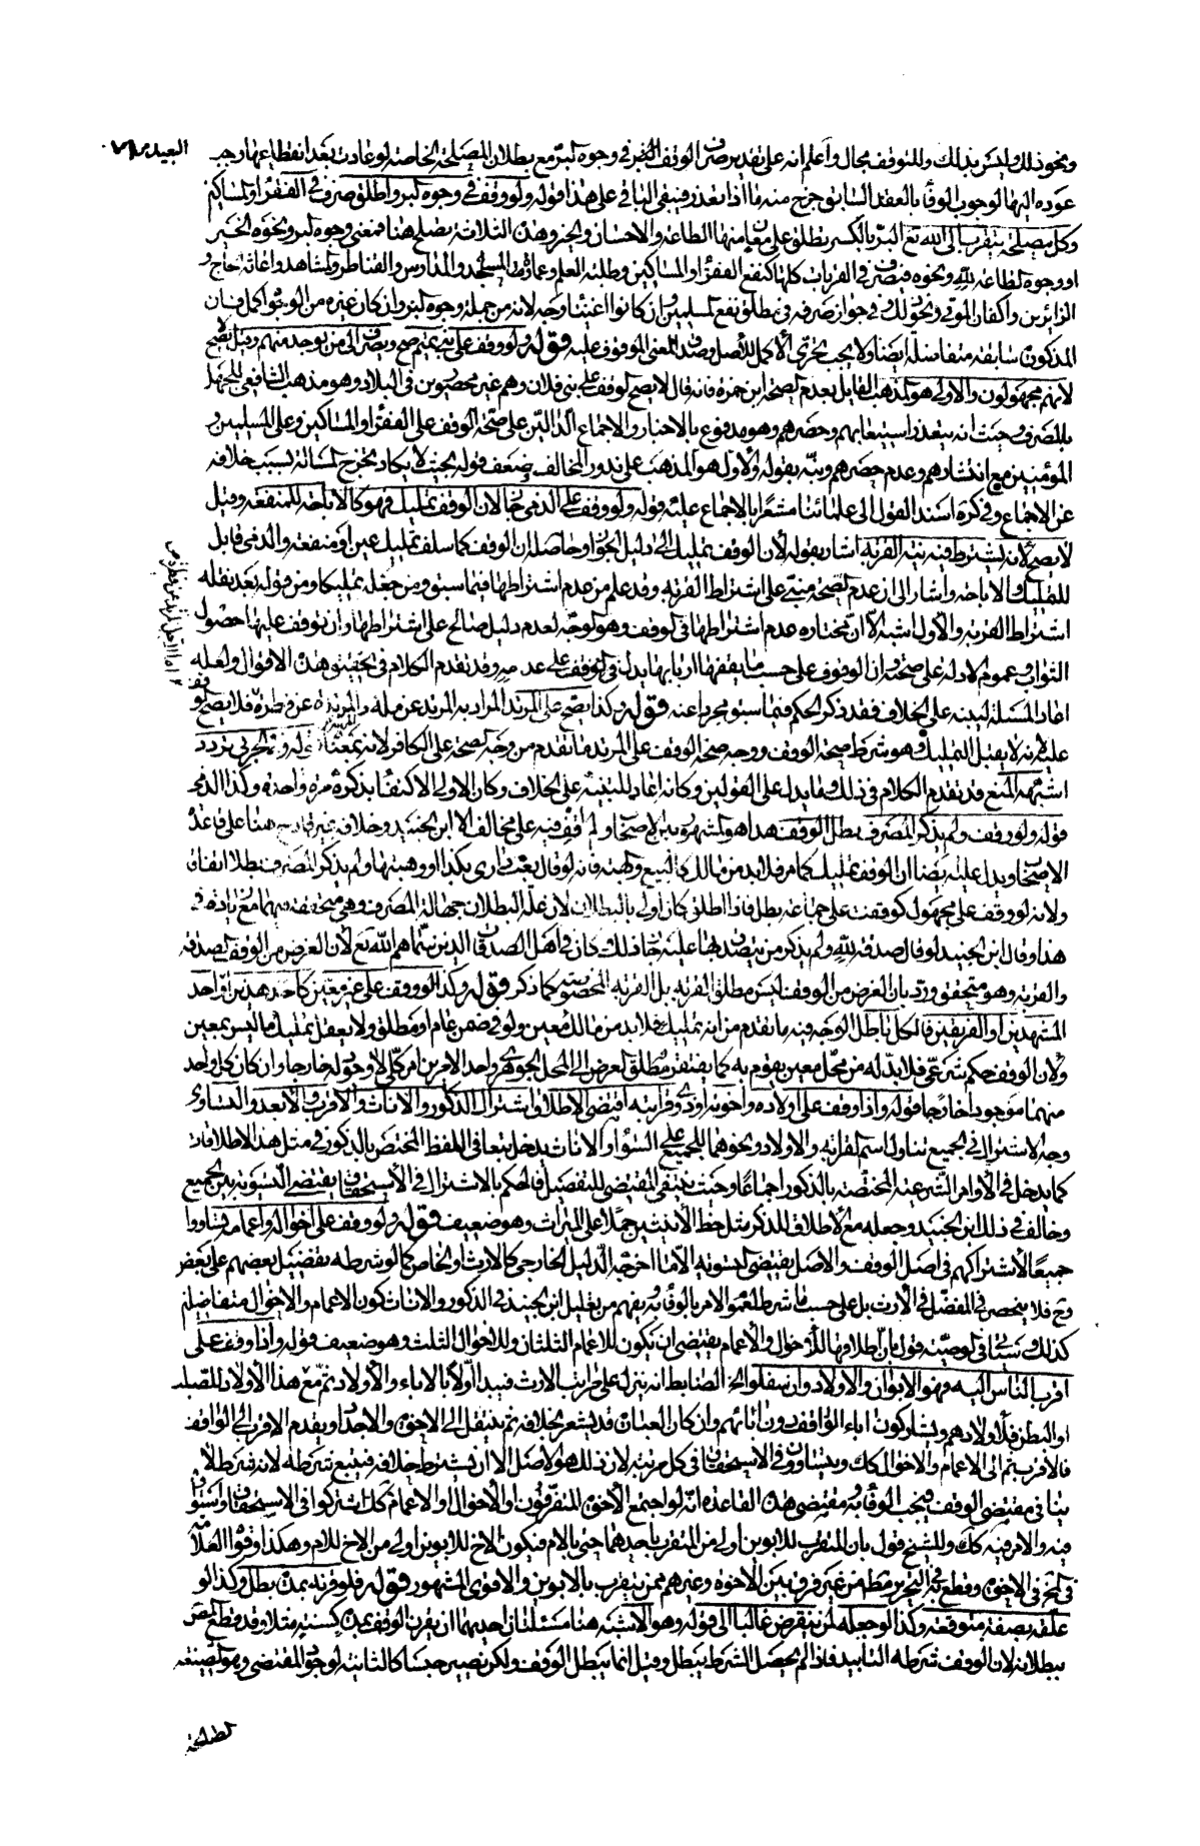 ونحو ذلك وليس بذلك وللتوقف مجال واعلم انه على تقدير صرف الوقف في وجوه البر مع بطلان المصلحة الخاصة لو عادت بعد انقطاعها وجب
عوده اليها لوجوب الوفاء بالعقد السابق خرج منه ما اذا تعذر فيبقى الباقي على هذا قوله ولو وقف في وجوه البر واطلق صرف في الفقراء والمساكين
وكل مصلحة يتقرب بها الى الله تع البر بالكسر يطلق على معان منها الطاعة والاحسان والخير وهذه الثلاثة تصلح هنا فمعنى وجوه البر وجوه الخير
او وجوه الطاعة لله ونحوه فيصرف في القربات كلها كنفع الفقراء والمساكين وطلبة العلم وعمارة المساجد والمدارس والقناطر والمشاهد واعانة الحاج و
الزائرين واكفان الموتى ونحو ذلك وفي جواز صرفه في مطلق نفع المسلمين وان كانوا اغنياء وجه لانه من جملة وجوه البر وان كان غيره من الوجوه اكمل فان
المذكورة سابقة متفاضلة ايضا ولا يجب تحري الاكمل للاصل وصدق المعنى الموقوف عليه قوله ولو وقف على بني تميم صح ويصرف الى من يوجد منهم وقيل لا يصح
لانهم مجهولون والاول هو المذهب القايل بعدم الصحة ابن حمزة فانه قال لا يصح الوقف على بني فلان وهم غير محصورين في البلاد وهو مذهب الشافعي للجهل
بالمصرف حيث انه يتعذر استيعابهم وحصرهم وهو مدفوع بالاخبار والاجماع الدالين على صحة الوقف على الفقراء والمساكين وعلى المسلمين و
المؤمنين مع انتشارهم وعدم حصرهم ونبه بقوله والاول هو المذهب على ندور المخالف وضعف قوله بحيث لا يكاد يخرج المسألة لسبب خلافه
عن الاجماع وفي كره اسند القول الى علمائنا مشعرا بالاجماع عليه قوله ولو وقف على الذمي جاز لان الوقف تمليك فهو كالاباحة للمنفعة وقيل
لا يصح لانه يشترط فيه نية القربة اشار بقوله لان الوقف تمليك الى دليل الجواز وحاصله ان الوقف كما سلف تمليك عين او منفعة والذمي قابل
للتمليك والاباحة واشار الى ان عدم الصحة مبني على اشتراط القربة وقد علم من عدم اشتراطها فيما سبق ومن جعله تمليكا ومن قوله بعد نقله
اشتراط القربة والاول اشبه ان مختاره عدم اشتراطها في الوقف وهو الوجه لعدم دليل صالح على اشتراطها وان توقف عليها حصول
الثواب وعموم الادلة على صحته وان الوقوف على حسب ما يقفها اربابها يدل في الوقف على عدمه وقد تقدم الكلام في تحقيق هذه الاقوال ولعله
اعاد المسألة لينبه على الخلاف فقد ذكر الحكم فيما سبق مجردا عنه قوله وكذا يصح على المرتد المراد به المرتد عن ملة والمرتدة عن فطرة فلا يصح الوقف
عليه لانه لا يقبل التمليك وهو شرط صحة الوقف ووجه صحة الوقف على المرتد ما تقدم من وجه الصحة على الكافر لانه بمعناه قوله وفي الحربي تردد
اشبهه المنع قد تقدم الكلام في ذلك وما يدل على القولين وكانه اعاد للتنبيه على الخلاف وكان الاولى الاكتفاء بذكره مرة واحدة وكذا الذمي
قوله ولو وقف ولم يذكر المصرف بطل الوقف هذا هو المشهور بين الاصحاب ولم اقف فيه على مخالف الا ابن الجنيد وخلافه غير قادح هنا على قاعدة
الاصحاب ويدل عليه ايضا ان الوقف تمليك كما مر فلا بد من مالك كالبيع والهبة فانه لو قال بعت داري بكذا او وهبتها ولم يذكر المصرف بطلا اتفاقا
ولانه لو وقف على مجهول كوقفت على جماعة بطل فاذا اطلق كان اولى بالبطلان لان علة البطلان جهالة المصرف وهي متحققة فيهما مع زيادة في
هذا وقال ابن الجنيد لو قال صدقة لله ولم يذكر من يتصدق بها عليه جاز ذلك وكان في اهل الصدقات الذين سماهم الله تع لان الغرض من الوقف الصدقة
والقربة وهو متحقق ورد بان الغرض من الوقف ليس مطلق القربة بل القربة المخصوصة كما ذكر قوله وكذا لو وقف على غير معين كاحد هذين او احد
المشهدين او الفريقين فالكل باطل الوجه فيه ما تقدم من انه تمليك فلا بد من مالك معين ولو في ضمن عام او مطلق ولا يعقل تمليك ما ليس بمعين
ولان الوقف حكم شرعي فلا بد له من محل معين يقوم به كما يفتقر مطلق العرض الى المحل الجوهري واحد الامرين امر كلي لا وجود له خارجا وان كان كل واحد
منهما موجودا خارجا قوله واذا وقف على اولاده واخوته او ذوي قرابته اقتضى الاطلاق اشتراك الذكور والاناث والاقرب والابعد والتساوي
وجه الاشتراك في الجميع تناول اسم القرابة والاولاد ونحوهما للجميع على السواء والاناث يدخل تبعا في اللفظ المختص بالذكور في مثل هذا الاطلاقات
كما يدخل في الاوامر الشرعية المختصة بالذكور اجماعا وحيث ينتفي المقتضي للتفضيل فالحكم بالاشتراك في الاستحقاق يقتضي التسوية بين الجميع
وخالف في ذلك ابن الجنيد وجعله مع الاطلاق للذكر مثل حظ الانثيين حملا على الميراث وهو ضعيف قوله ولو وقف على اخواله واعمامه تساووا
جميعا لاشتراكهم في اصل الوقف والاصل يقتضي التسوية الا ما اخرجه الدليل الخارجي كالارث او الخاص كما لو شرطه بتفضيل بعضهم على بعض
وح فلا ينحصر في المفضل في الارث بل على حسب ما شرط لعموم الامر بالوفاء به يفهم من تعليل ابن الجنيد في الذكور والاناث كون الاعمام والاخوال متفاضلين
كذلك سيأتي في الوصية قول بان اطلاقها للاخوال والاعمام يقتضي ان يكون للاعمام الثلثان وللاخوال الثلث وهو ضعيف قوله واذا وقف على
اقرب الناس اليه فهو الابوان والاولاد وان سفلوا الخ الضابط انه ينزل على مراتب الارث فيبدأ اولا بالاباء والاولاد ثم مع هذا الاولاد للصلب
او البطن فلاولادهم ويشاركون اباء الواقف دون ابائهم وان كان العبارة قد يشعر بخلافه ثم ينتقل الى الاخوة والاجداد ويقدم الاقرب الى الواقف
فالاقرب ثم الى الاعمام والاخوال كك ويتساوون في الاستحقاق في كل مرتبة لان ذلك هو الاصل الا ان يشترط خلافه فيتبع شرطه لانه شرط لا
ينافي مقتضى الوقف فيجب الوفاء به ومقتضى هذه القاعدة انه لو اجتمع الاخوة المتفرقون او الاخوال او الاعمام كذلك اشتركوا في الاستحقاق واستووا
فيه والامر فيه كك وللشيخ قول بان المتقرب للابوين اولى من المتقرب باحدهما حتى بالام فيكون الاخ للابوين اولى من الاخ للام وهكذا وقواه العلامة
في لف في الاخوة وقطع به في التحرير مطلقا من غير فرق بين الاخوة وغيرهم ممن يتقرب بالابوين والاقوى المشهور قوله فلو قرنه بمدة بطل وكذا لو
علقه بصفة متوقعة وكذا لو جعله لمن ينقرض غالبا الى قوله وهو الاشبه هنا مسئلتان احديهما ان يقرن الوقف بمدة كسنة مثلا وقد قطع المص
ببطلانه لان الوقف شرطه التأبيد فاذا لم يحصل الشرط بطل وقيل انما يبطل الوقف ولكن يصير حبسا كالثانية لوجود المقتضي وهو الصيغة